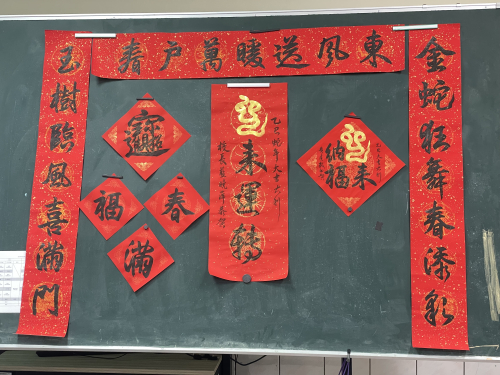 東風送暖萬戶春
金蛇狂舞春添彩
玉樹臨風喜滿門
來運轉
乙巳蛇年大吉大利
來
納福
招財進寶
春
福
滿